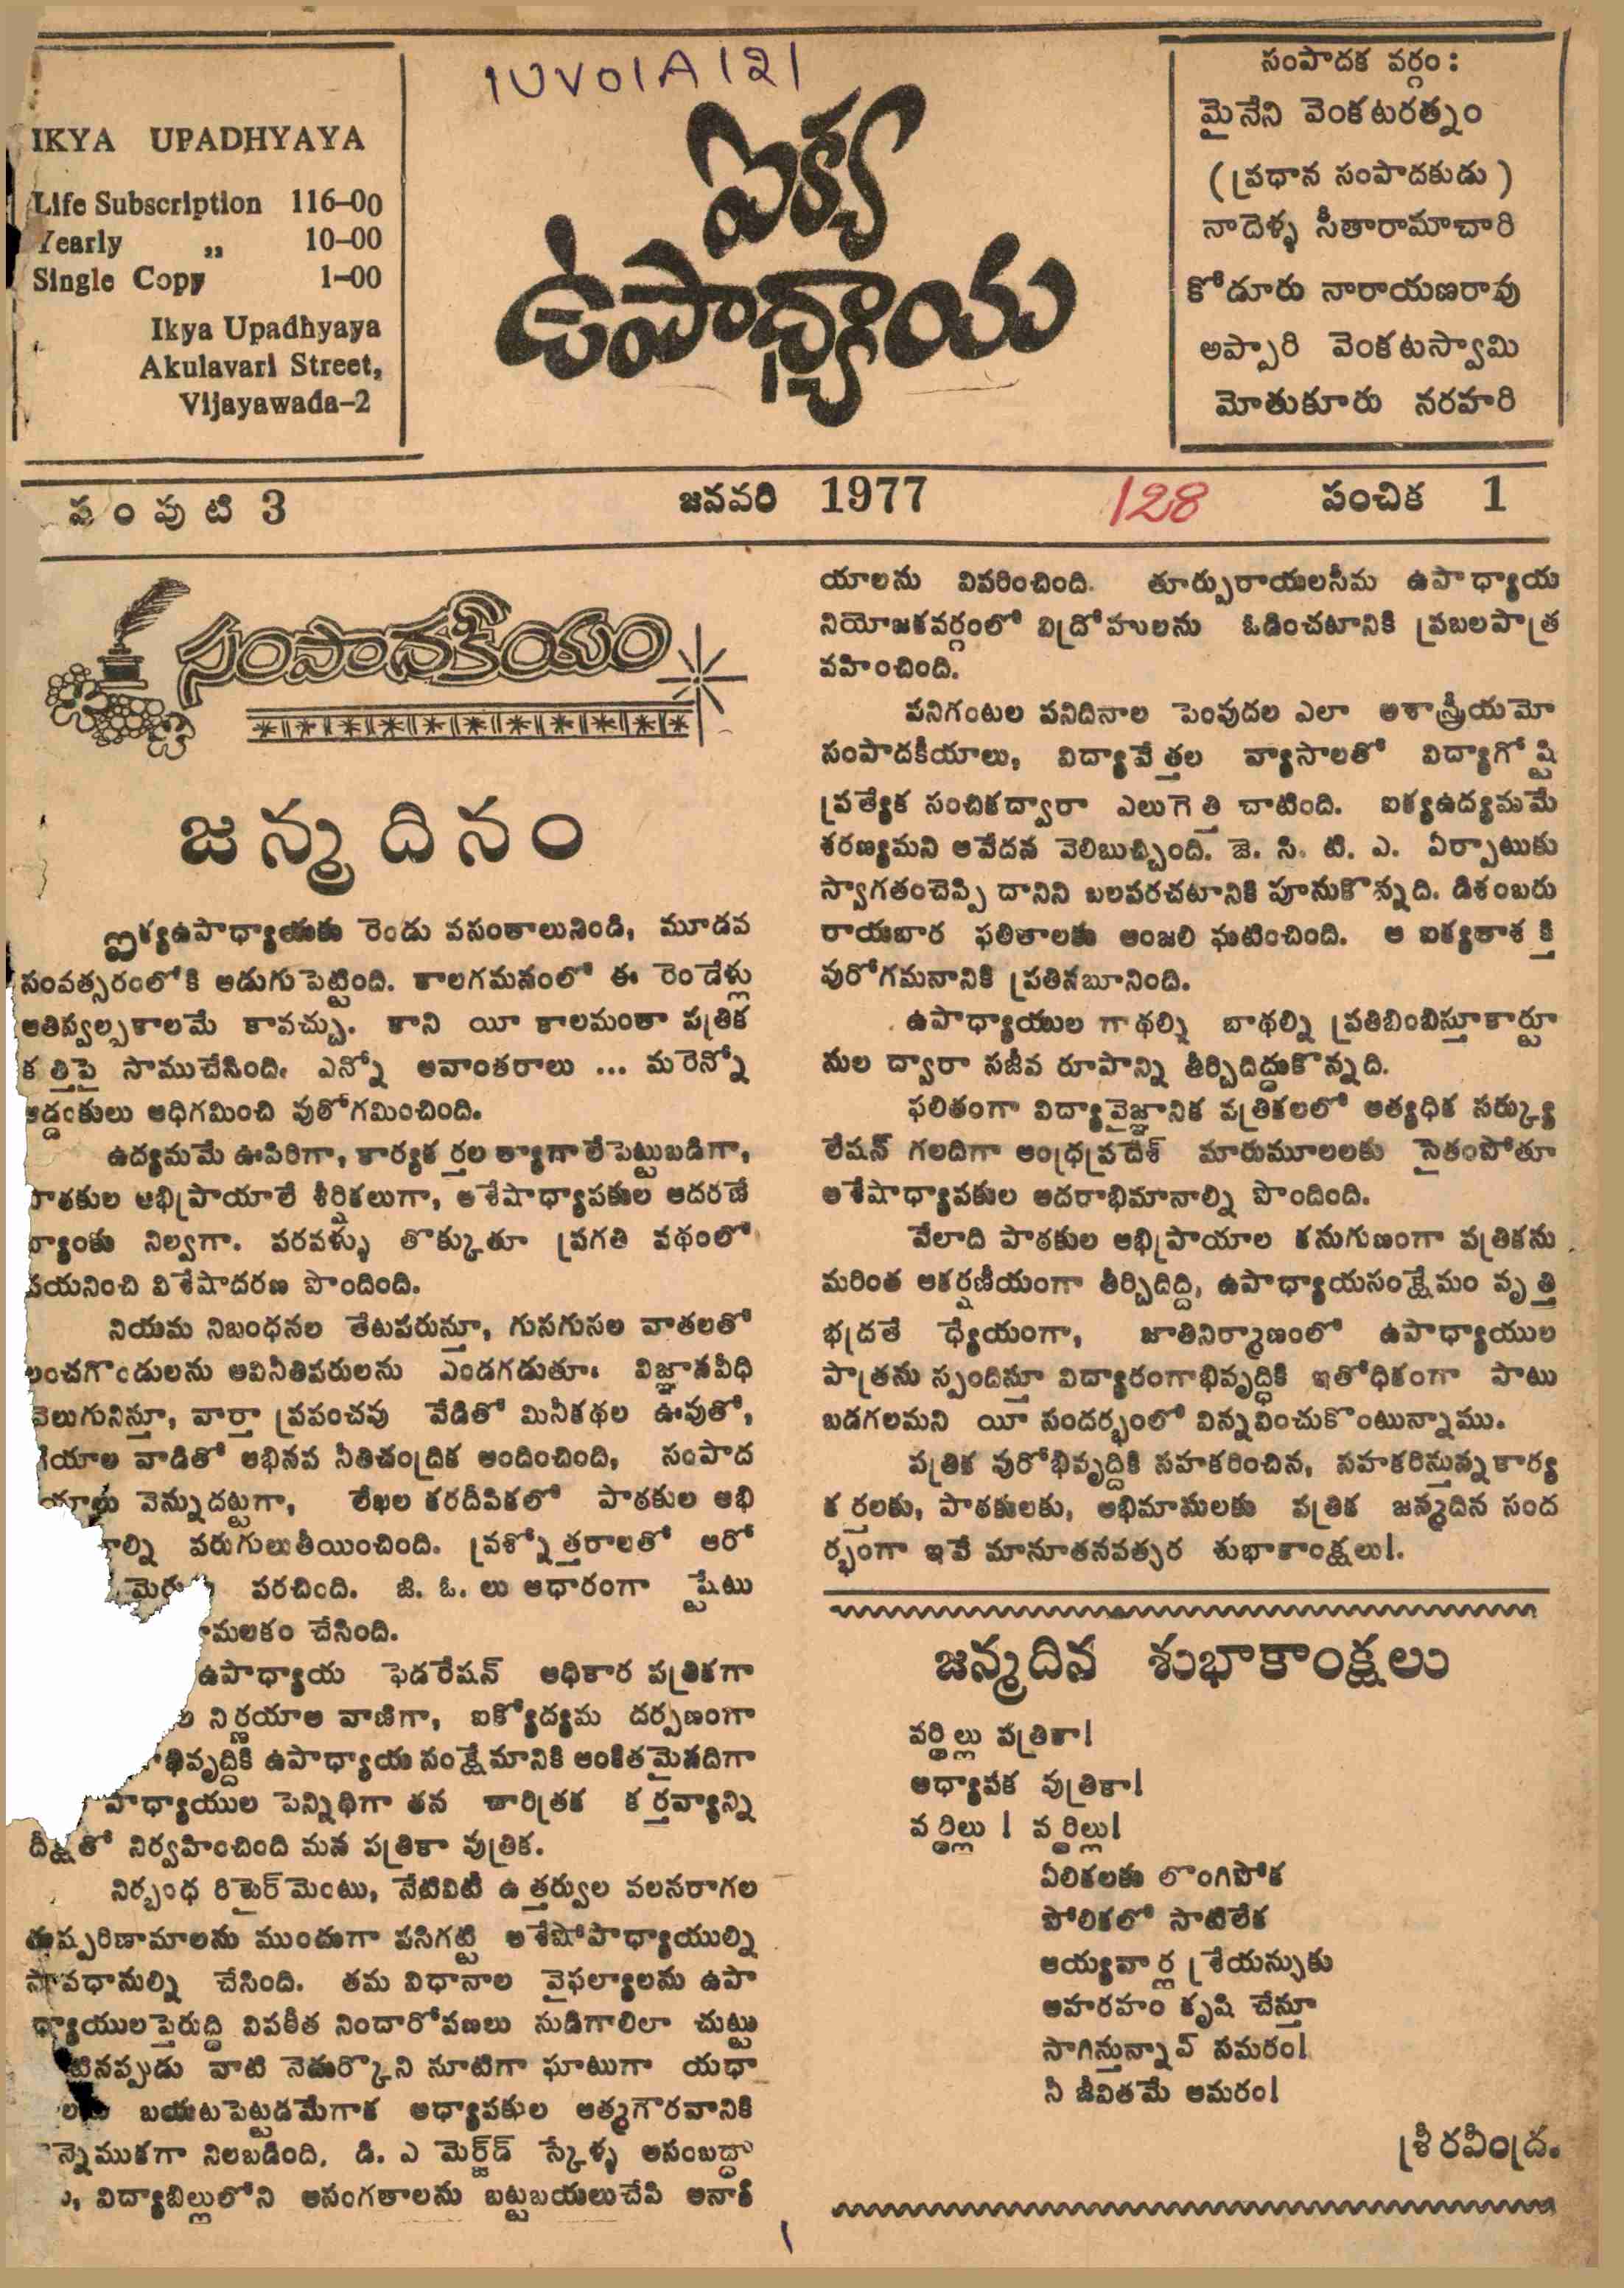 1UVOIA121
IKYA UPADHYAYA
Life Subscription 116-00
Yearly ,, 10-00
Single Copy 1-00
Ikya Upadhyaya
Akulavari Street,
Vijayawada-2
ఐక్య
ఉపాధ్యాయ
సంపాదక వర్గం :
మైనేని వెంకటరత్నం
( ప్రధాన సంపాదకుడు )
నాదెళ్ళ సీతారామాచారి
కోడూరు నారాయణరావు
అప్పారి వెంకటస్వామి
మోతుకూరు నరహరి
సంపుటి 3
జనవరి 1977
128
సంచిక 1
సంపాదకీయం
జన్మదినం
ఐక్యఉపాధ్యాయకు రెండు వసంతాలునిండి, మూడవ
సంవత్సరంలోకి అడుగుపెట్టింది. కాలగమనంలో ఈ రెండేళ్లు
అతిస్వల్పకాలమే కావచ్చు. కాని యీ కాలమంతా పత్రిక
కత్తిపై సాముచేసింది. ఎన్నో అవాంతరాలు ... మరెన్నో
అడ్డంకులు అధిగమించి పురోగమించింది.
ఉద్యమమే ఊపిరిగా, కార్యకర్తల త్యాగాలేపెట్టుబడిగా,
పాఠకుల అభిప్రాయాలే శీర్షికలుగా, అశేషాధ్యాపకుల ఆదరణే
బ్యాంకు నిల్వగా. పరవళ్ళు తొక్కుతూ ప్రగతి పథంలో
పయనించి విశేషాదరణ పొందింది.
నియమ నిబంధనల తేటపరుస్తూ, గుసగుసల వాతలతో
లంచగొండులను అవినీతిపరులను ఎండగడుతూ. విజ్ఞానవీధి
వెలుగునిస్తూ, వార్తా ప్రపంచపు వేడితో మినీకథల ఊవుతో,
గేయాల వాడితో అభినవ నీతిచంద్రిక అందించింది, సంపాద
యాలు వెన్నుదట్టుగా, లేఖల కరదీపికలో పాఠకుల అభి
ల్ని పరుగులుతీయించింది. ప్రశ్నోత్తరాలతో ఆరో
పరచింది. జి. ఓ. లు ఆధారంగా స్టేటు
మలకం చేసింది.
ఉపాధ్యాయ ఫెడరేషన్ అధికార పత్రికగా
నిర్ణయాల వాణిగా, ఐక్యోద్యమ దర్పణంగా
భివృద్ధికి ఉపాధ్యాయ సంక్షేమానికి అంకితమైనదిగా
పాధ్యాయుల పెన్నిథిగా తన చారిత్రక కర్తవ్యాన్ని
దీక్షతో నిర్వహించింది మన పత్రికా పుత్రిక.
నిర్బంధ రిటైర్‌మెంటు, నేటివిటీ ఉత్తర్వుల వలనరాగల
దుష్పరిణామాలను ముందుగా పసిగట్టి అశేషోపాధ్యాయుల్ని
సావధానుల్ని చేసింది. తమ విధానాల వైఫల్యాలను ఉపా
ధ్యాయులపైరుద్ది విపరీత నిందారోపణలు సుడిగాలిలా చుట్టు
టినప్పుడు వాటి నెదుర్కొని సూటిగా ఘాటుగా యధా
బయటపెట్టడమేగాక అధ్యాపకుల ఆత్మగౌరవానికి
న్నెముకగా నిలబడింది. డి. ఎ మెర్జ్‌డ్ స్కేళ్ళ అసంబద్ధా
విద్యాబిల్లులోని అసంగతాలను బట్టబయలుచేసి అనా
యాలను వివరించింది. తూర్పురాయలసీమ ఉపాధ్యాయ
నియోజకవర్గంలో విద్రోహులను ఓడించటానికి ప్రబలపాత్ర
వహించింది.
పనిగంటల పనిదినాల పెంపుదల ఎలా అశాస్త్రీయమో
సంపాదకీయాలు, విద్యావేత్తల వ్యాసాలతో విద్యాగోష్టి
ప్రత్యేక సంచికద్వారా ఎలుగెత్తి చాటింది. ఐక్యఉద్యమమే
శరణ్యమని ఆవేదన వెలిబుచ్చింది. జె. సి. టి. ఎ. ఏర్పాటుకు
స్వాగతంచెప్పి దానిని బలపరచటానికి పూనుకొన్నది. డిశంబరు
రాయబార ఫలితాలకు అంజలి ఘటించింది. ఆ ఐక్యతాశక్తి
పురోగమనానికి ప్రతినబూనింది.
ఉపాధ్యాయుల గాథల్ని బాధల్ని ప్రతిబింబిస్తూకార్టూ
నుల ద్వారా సజీవ రూపాన్ని తీర్చిదిద్దుకొన్నది.
ఫలితంగా విద్యావైజ్ఞానిక పత్రికలలో అత్యధిక సర్క్యు
లేషన్ గలదిగా ఆంధ్రప్రదేశ్ మారుమూలలకు సైతంపోతూ
అశేషాధ్యాపకుల ఆదరాభిమానాల్ని పొందింది.
వేలాది పాఠకుల అభిప్రాయాల కనుగుణంగా పత్రికను
మరింత ఆకర్షణీయంగా తీర్చిదిద్ది, ఉపాధ్యాయసంక్షేమం వృత్తి
భద్రతే ధ్యేయంగా, జాతినిర్మాణంలో ఉపాధ్యాయుల
పాత్రను స్పందిస్తూ విద్యారంగాభివృద్ధికి ఇతోధికంగా పాటు
బడగలమని యీ సందర్భంలో విన్నవించుకొంటున్నాము.
పత్రిక పురోభివృద్దికి సహకరించిన, సహకరిస్తున్న కార్య
కర్తలకు, పాఠకులకు, అభిమానులకు పత్రిక జన్మదిన సంద
ర్భంగా ఇవే మానూతనవత్సర శుభాకాంక్షలు!.
జన్మదిన శుభాకాంక్షలు
వర్ధిల్లు పత్రికా!
అధ్యాపక పుత్రికా!
వర్ధిల్లు ! వర్ధిల్లు!
ఏలికలకు లొంగిపోక
పోలికలో సాటిలేక
అయ్యవార్ల శ్రేయస్సుకు
అహరహం కృషి చేస్తూ
సాగిస్తున్నావ్ సమరం!
నీ జీవితమే అమరం!
శ్రీరవీంద్ర.